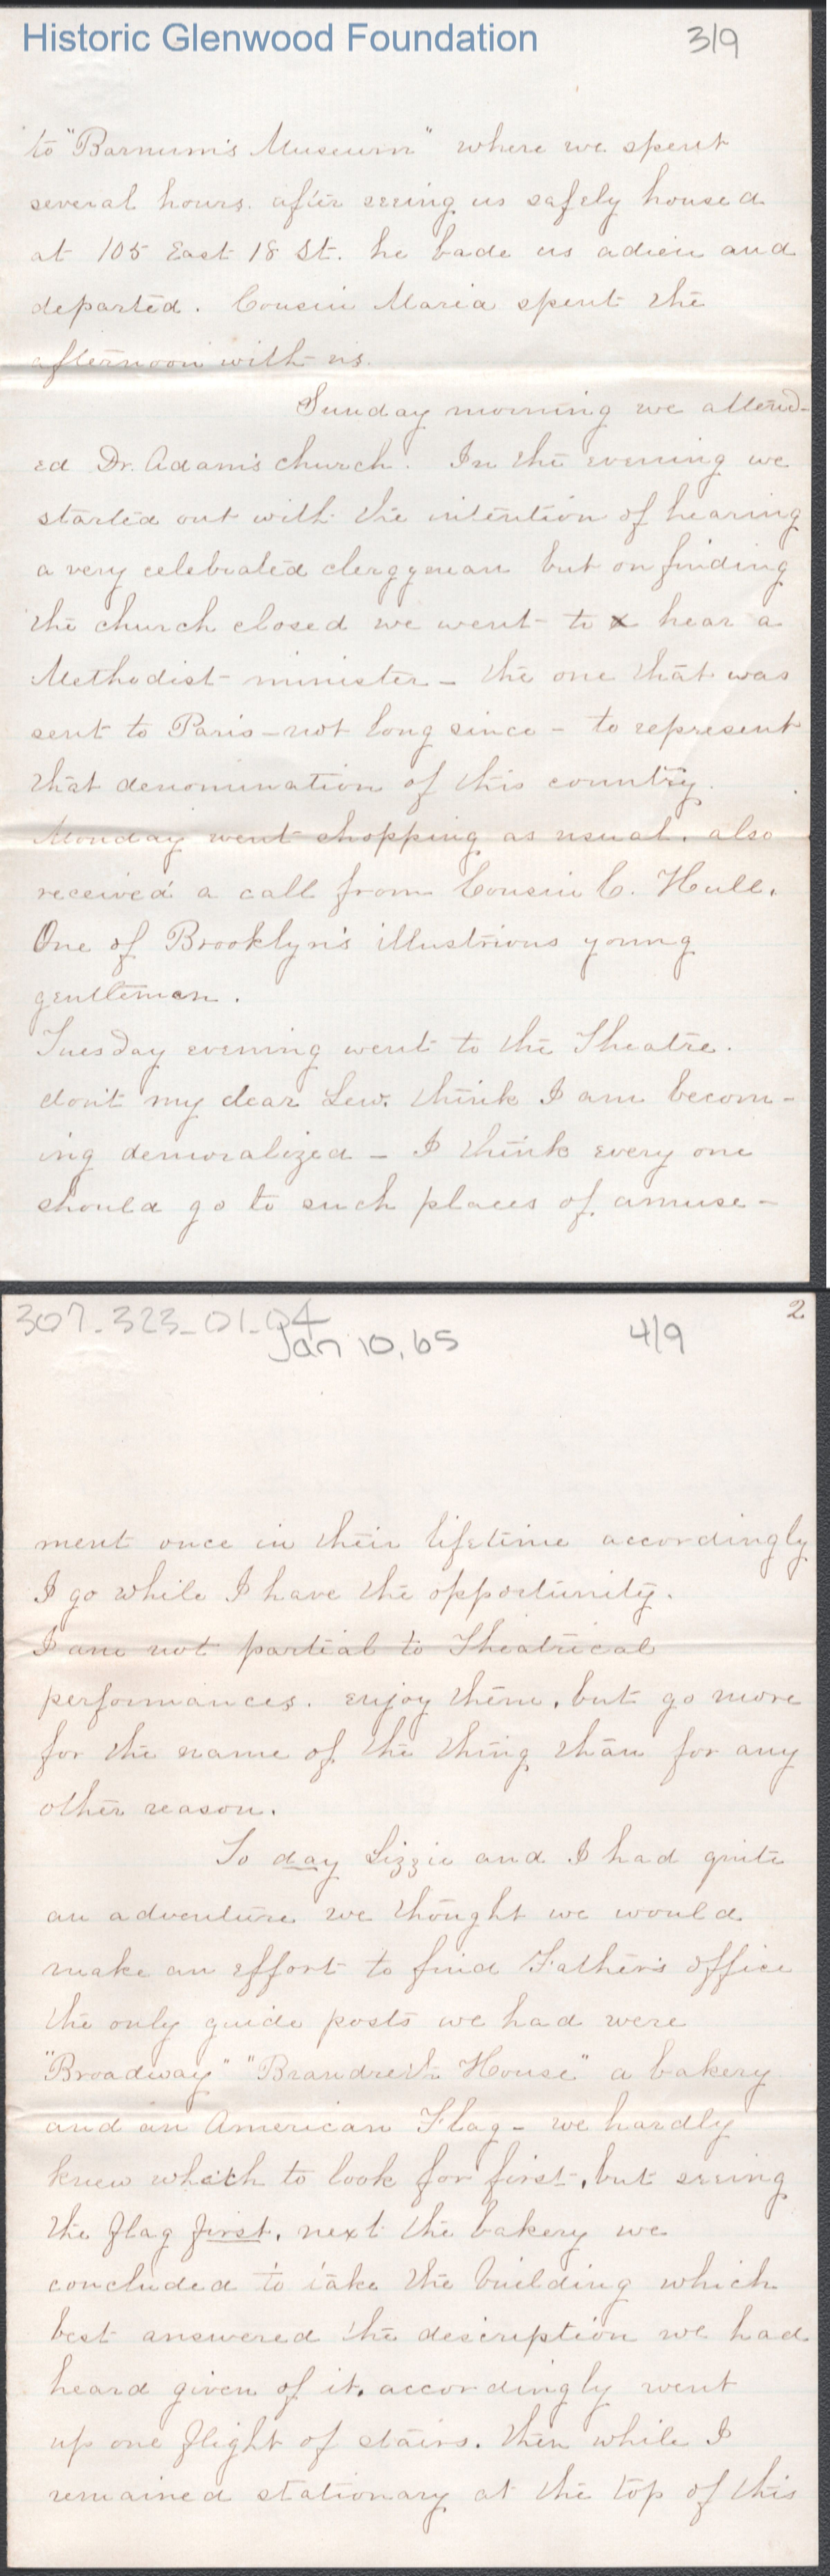 Historic Glenwood Foundation
3/9
to "Barnum's Museum" where we spent
several hours. after seeing us safely housed
at 105 East 18 St. he bade us adieu and
departed. Cousin Maria spent the
afternoon with us.
Sunday morning we attend-
ed Dr. Adam's church. In the evening we
started out with the intention of hearing
a very celebrated clergyman but on finding
the church closed we went to x hear a
Methodist minister - the one that was
sent to Paris - not long since - to represent
that denomination of this country.
Monday went shopping as usual. also
received a call from Cousin C. Hull.
One of Brooklyn's illustrious young
gentlemen.
Tuesday evening went to the Theatre.
don't my dear Lew. think I am becom-
ing demoralized - I think every one
should go to such places of amuse-
307-323-01-04
Jan 10, 65
4/9
2
ment once in their lifetime accordingly
I go while I have the opportunity.
I am not partial to Theatrical
performances. enjoy them, but go more
for the name of the thing than for any
other reason.
To day Lizzie and I had quite
an adventure we thought we would
make an effort to find Father's office
the only guide posts we had were
"Broadway" "Brandreth House" a bakery
and an American Flag - we hardly
knew which to look for first, but seeing
the flag first, next the bakery we
concluded to take the building which
best answered the description we had
heard given of it, accordingly went
up one flight of stairs. then while I
remained stationary at the top of this